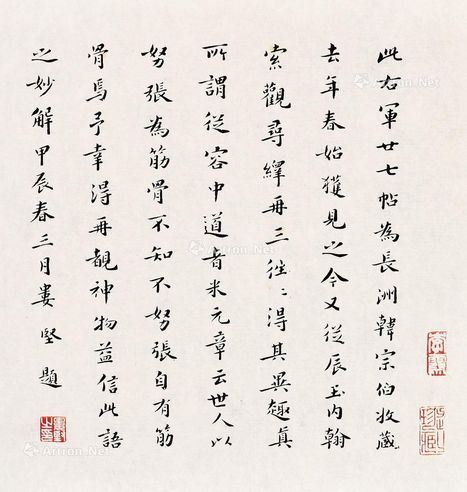 此右軍廿七帖為長洲韓宗伯收藏
去年春始獲見之今又從辰玉內翰
索觀尋繹再三往〻得其異趣真
所謂從容中道者米元章云世人以
努張為筋骨不知不努張自有筋
骨焉予幸得再覩神物益信此語
之妙解甲辰春三月婁堅題
Artron.Net